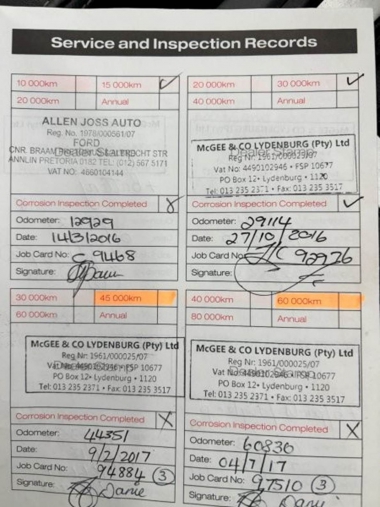 Service and Inspection Records
10 000km 15 000km
20 000km Annual
ALLEN JOSS AUTO
Reg. No. 1978/000561/07
FORD
CNR. BRAAM
ANNLIN PRETORIA 0182 TEL: (012) 567 5171
VAT NO: 4660104144
Corrosion Inspection Completed
Odometer: 12929
Date: 14/3/2016
Job Card No: C 9468
Signature:
20 000km 30 000km
40 000km Annual
McGEE & CO LYDENBURG (Pty) Ltd
Reg Nr: 1961/000025/07
Vat No: 4490102946 • FSP 10677
PO Box 12• Lydenburg • 1120
Tel: 013 235 2371 • Fax: 013 235 3517
Corrosion Inspection Completed
Odometer: 29114
Date: 27/10/2016
Job Card No: 92976
Signature:
30 000km 45 000km
60 000km Annual
McGEE & CO LYDENBURG (Pty) Ltd
Reg Nr: 1961/000025/07
Vat No: 4490102946 • FSP 10677
PO Box 12• Lydenburg • 1120
Tel: 013 235 2371 • Fax: 013 235 3517
Corrosion Inspection Completed X
Odometer: 44351
Date: 9/2/2017
Job Card No: 94884 3
Signature: Danie
40 000km 60 000km
80 000km Annual
McGEE & CO LYDENBURG (Pty) Ltd
Reg Nr: 1961/000025/07
Vat No: 4490102946 • FSP 10677
PO Box 12• Lydenburg • 1120
Tel: 013 235 2371 • Fax: 013 235 3517
Corrosion Inspection Completed X
Odometer: 60836
Date: 04/7/17
Job Card No: 97510 3
Signature: Danie